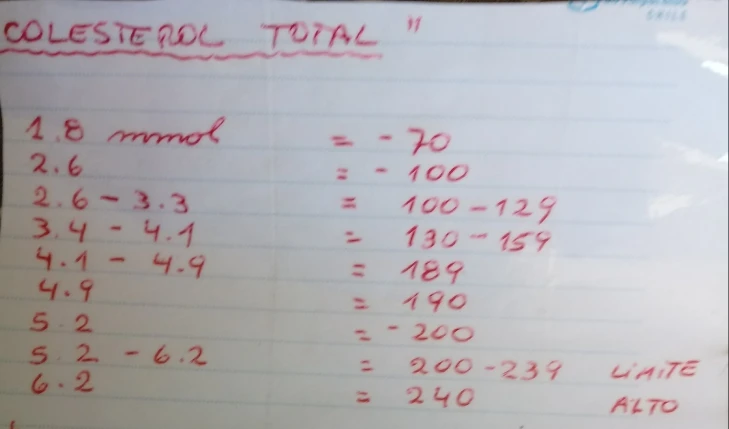 COLESTEROL TOTAL "
1.8 mmol = - 70
2.6 = - 100
2.6 - 3.3 = 100 - 129
3.4 - 4.1 = 130 - 159
4.1 - 4.9 = 189
4.9 = 190
5.2 = - 200
5.2 - 6.2 = 200 - 239 LIMITE
6.2 = 240 ALTO